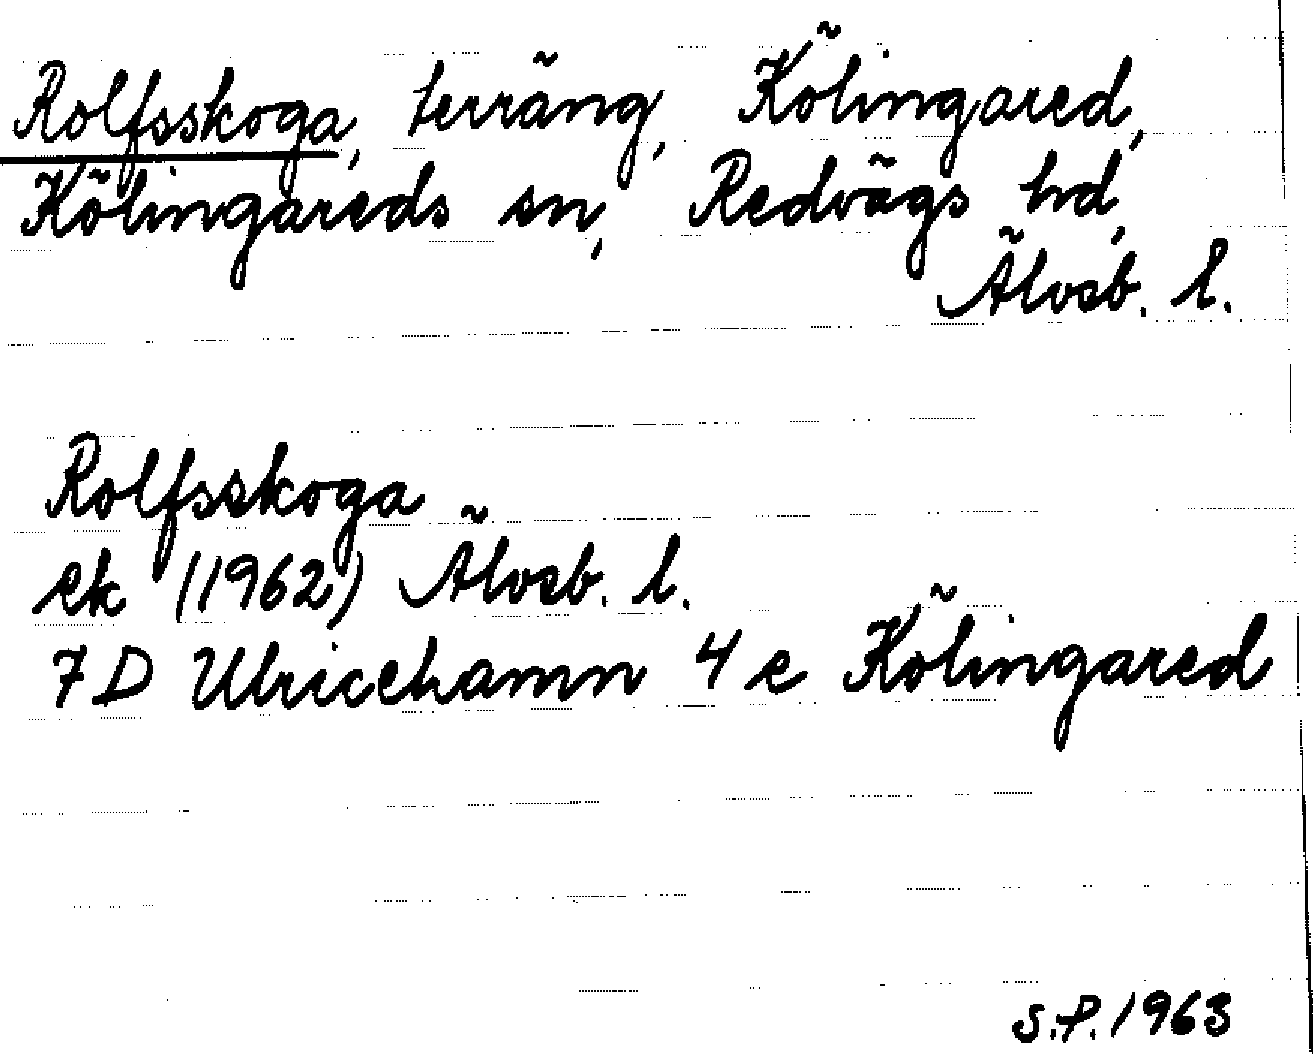 Rolfsskoga, terräng, Kölingared,
Kölingareds sn, Redvägs hd,
Älvsb. l.
Rolfsskoga
ek (1962) Älvsb. l.
7 D Ulricehamn 4 e Kölingared
S.P. 1963